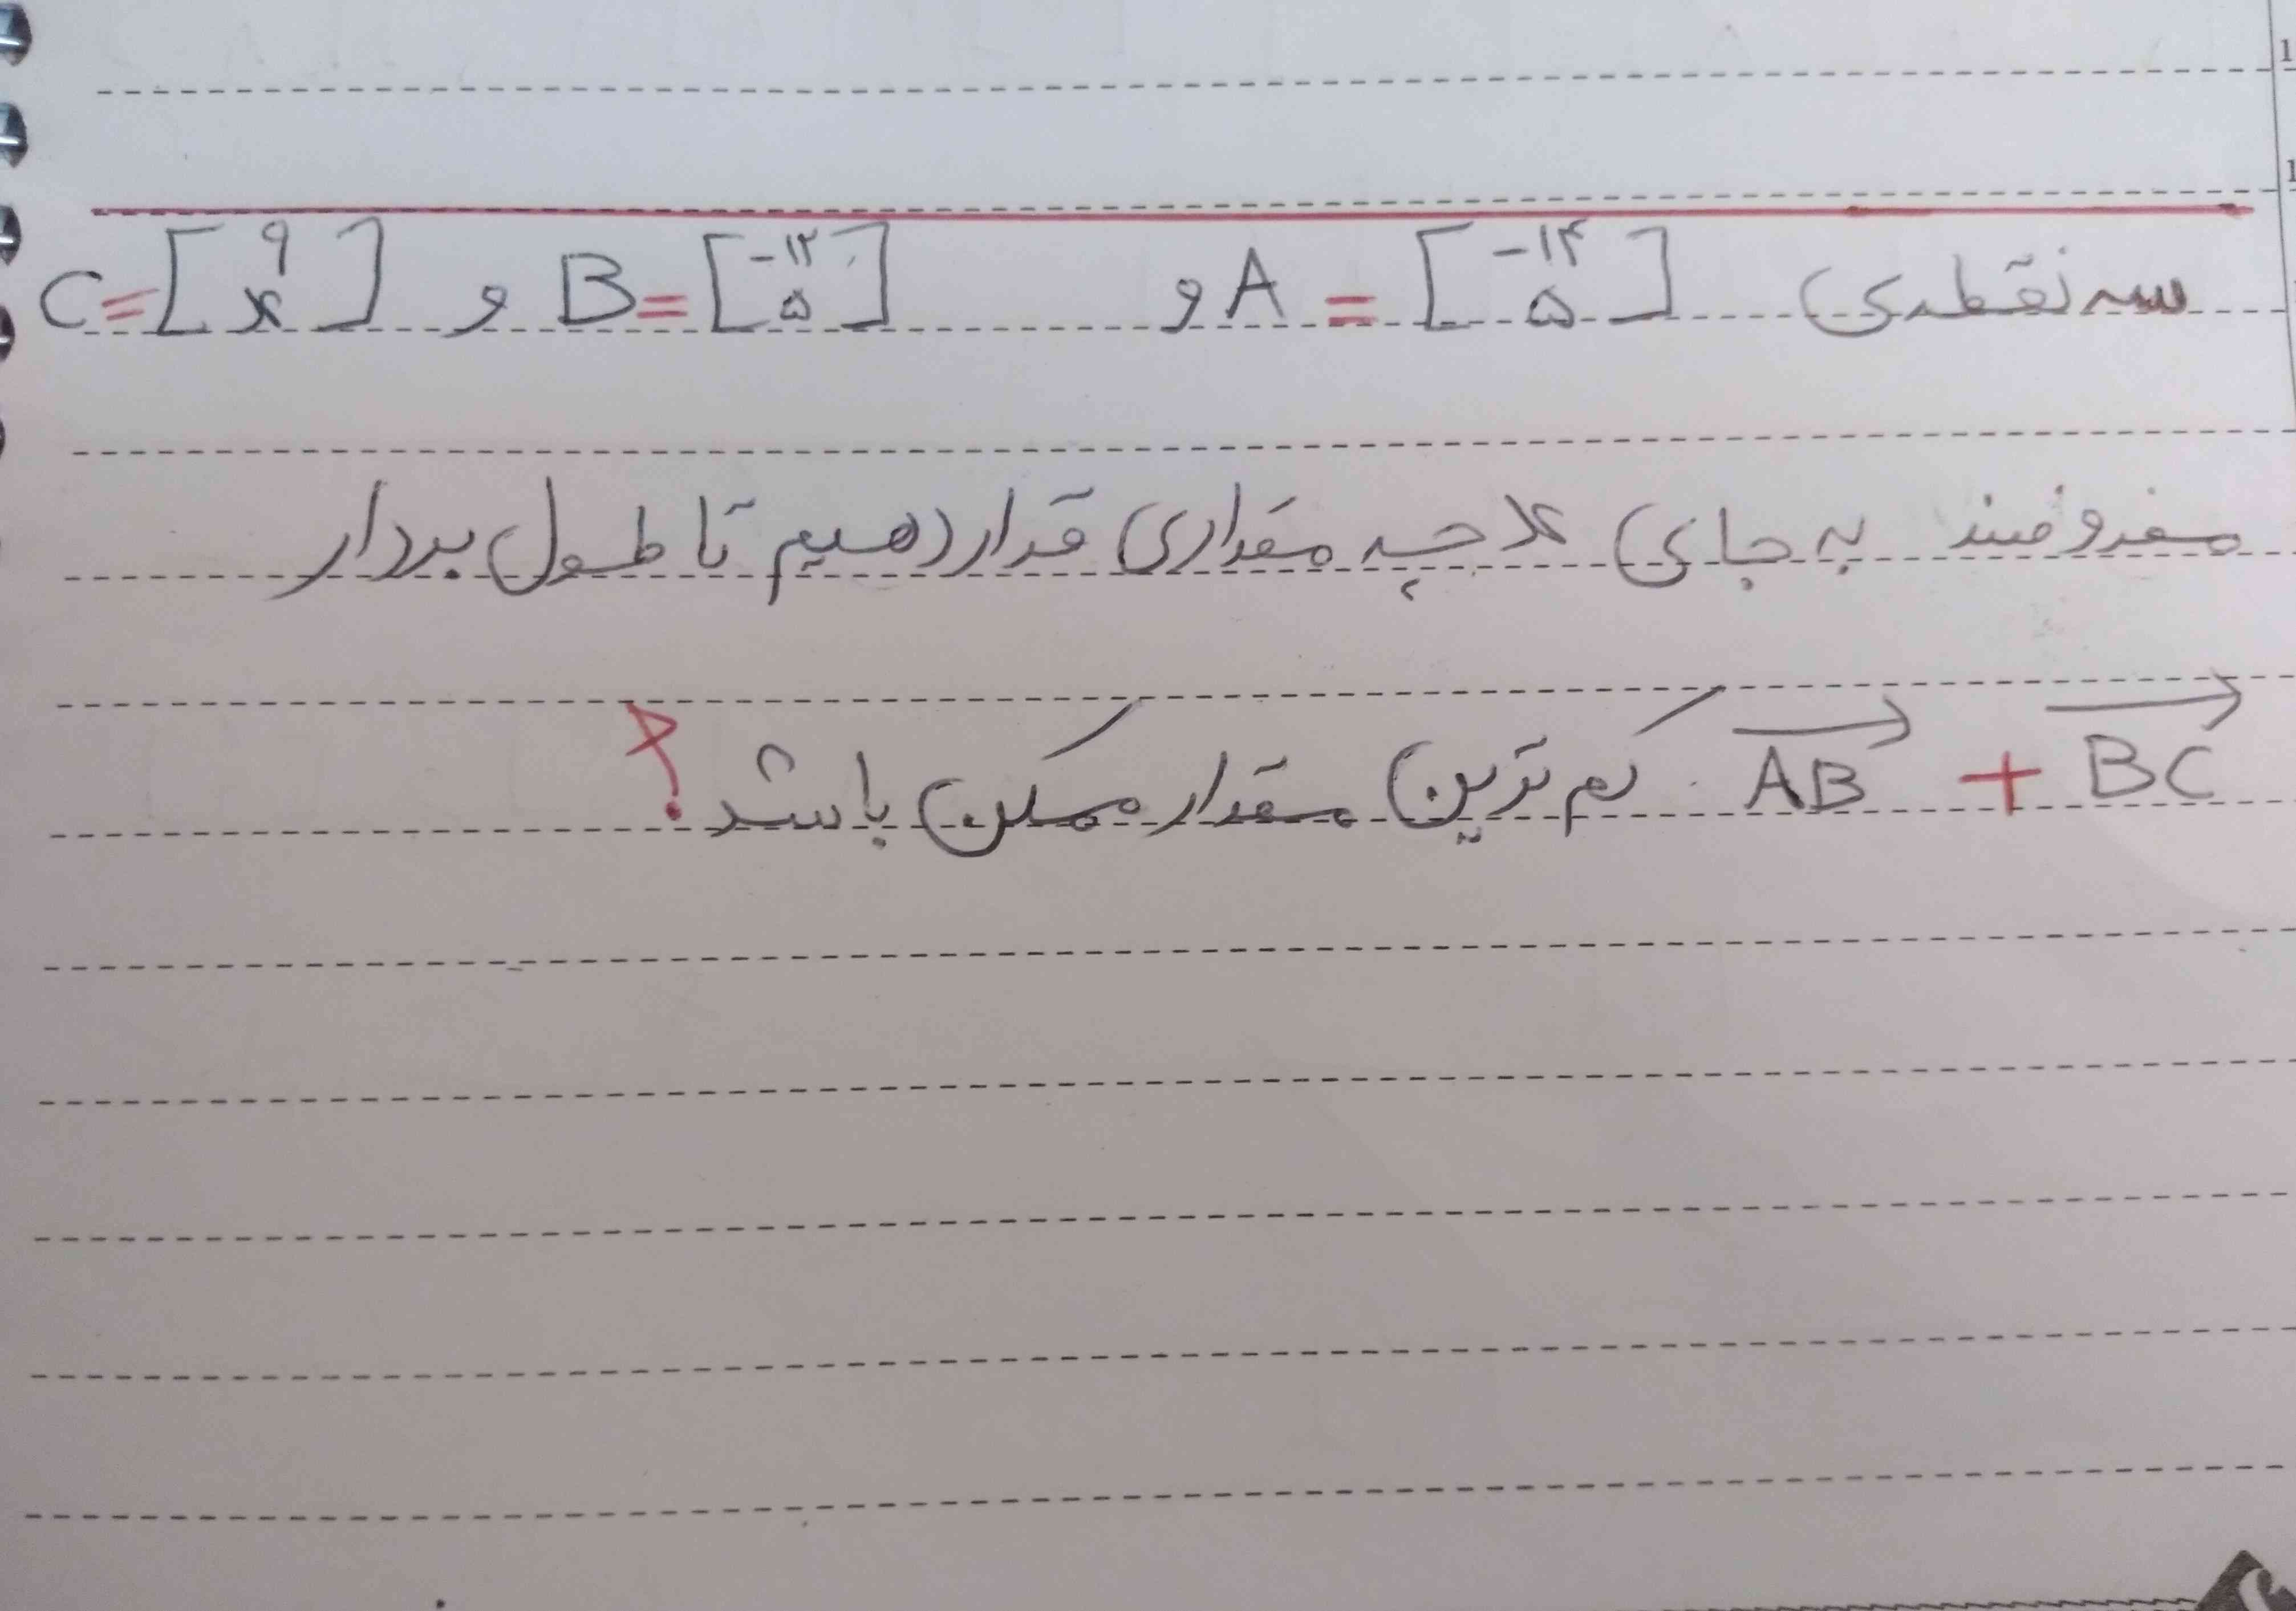 سه نقطه‌ی A = [-۱۴ ۵] و B = [-۱۲ ۵] و C = [۹ x]
مفروضند به جای x چه مقداری قرار دهیم تا طول بردار
AB + BC کم ترین مقدار ممکن باشد؟